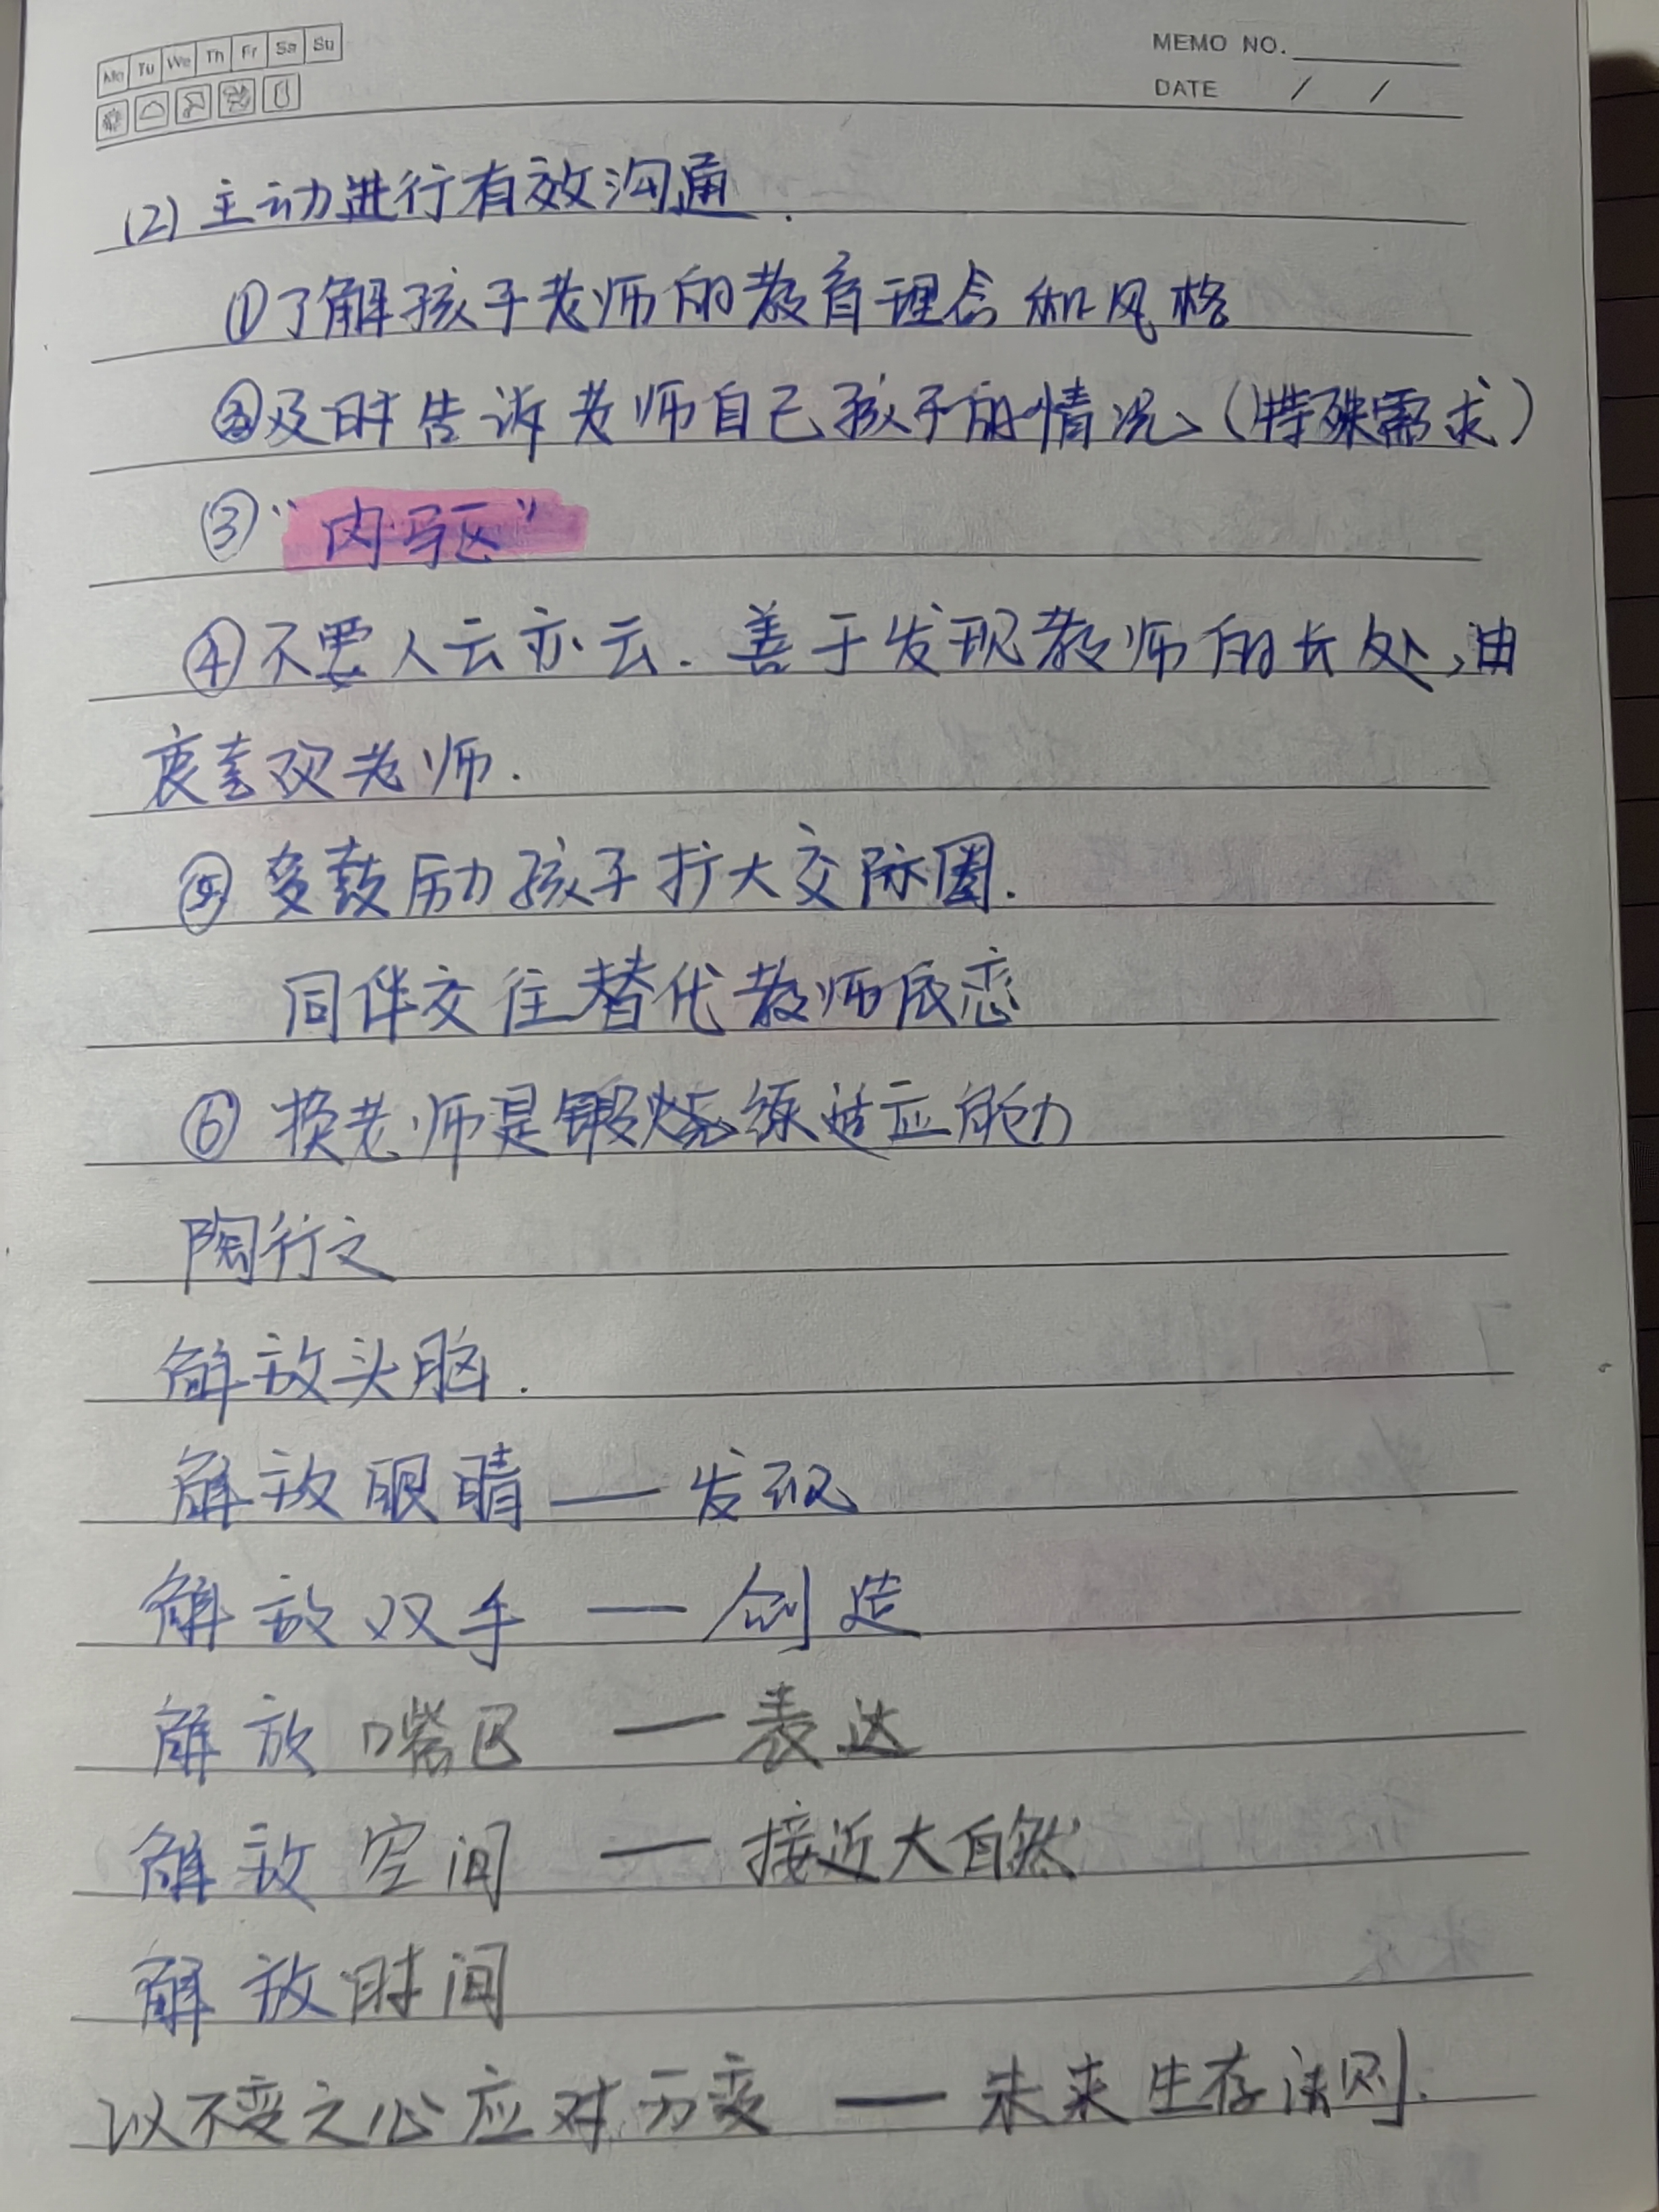 Mo Tu We Th Fr Sa Su
MEMO NO.
DATE / /
(2) 主动进行有效沟通.
①了解孩子老师的教育理念和风格
②及时告诉老师自己孩子的情况、(特殊需求)
③“内驱”
④不要人云亦云.善于发现教师的长处,由
衷喜欢老师.
⑤ 多鼓励孩子扩大交际圈.
同伴交往替代教师依恋
⑥ 换老师是锻炼适应能力
陶行之
解放头脑.
解放眼睛——发现
解放双手——创造
解放嘴巴——表达
解放空间——接近大自然
解放时间
以不变之心应对万变——未来生存法则.